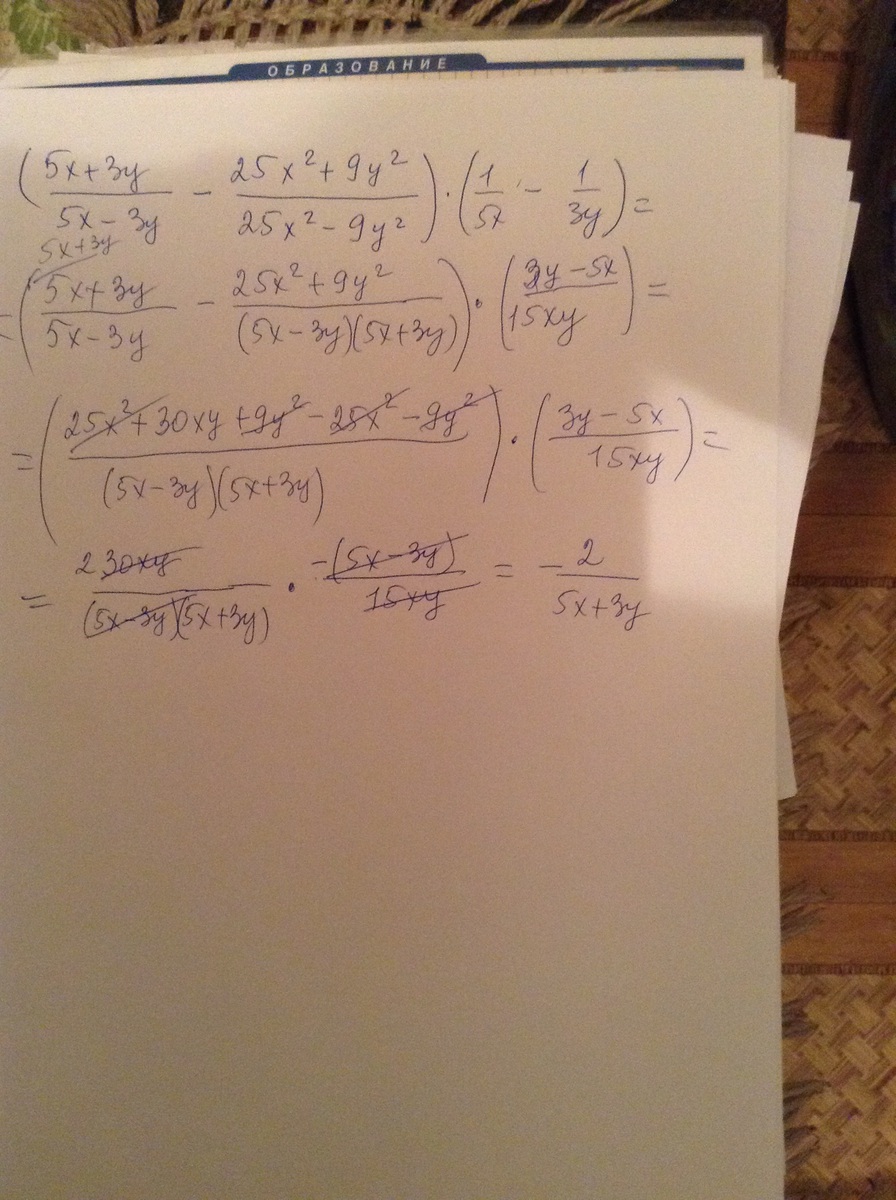 ОБРАЗОВАНИЕ
( (5x+3y)/(5x-3y) - (25x²+9y²)/(25x²-9y²) ) · ( 1/5x - 1/3y ) =
5x+3y
= ( (5x+3y)/(5x-3y) - (25x²+9y²)/((5x-3y)(5x+3y)) ) · ( (3y-5x)/15xy ) =
= ( (25x²+30xy+9y²-25x²-9y²)/((5x-3y)(5x+3y)) ) · ( (3y-5x)/15xy ) =
= 2 30xy/((5x-3y)(5x+3y)) · -(5x-3y)/15xy = - 2/(5x+3y)